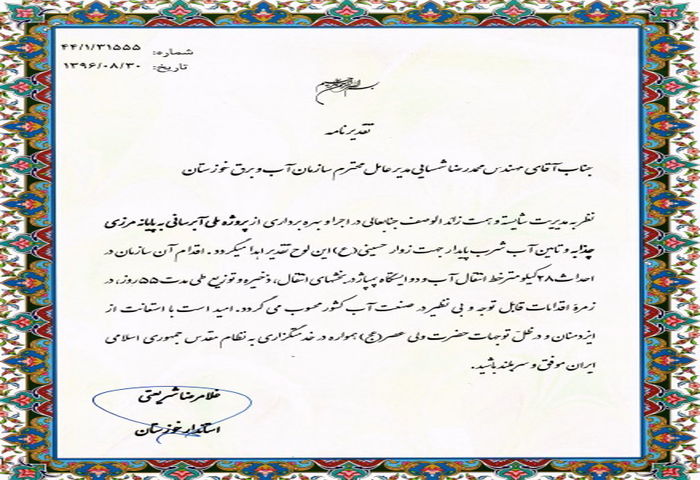 شماره: ۴۴/۱/۳۱۵۵۵
تاریخ: ۱۳۹۶/۰۸/۳۰
بسم الله الرحمن الرحیم
تقدیرنامه
جناب آقای مهندس محمدرضا شمسایی مدیرعامل محترم سازمان آب و برق خوزستان
نظر به مدیریت شایسته و همت زائد الوصف جنابعالی در اجرا و بهره برداری از پروژه ملی آبرسانی به پایانه مرزی
چذابه و تامین آب شرب پایدار جهت زوار حسینی (ع) این لوح تقدیر اهدا میگردد. اقدام آن سازمان در
احداث ۲۸ کیلومتر خط انتقال آب و دو ایستگاه پمپاژ در بخشهای انتقال، ذخیره و توزیع طی مدت ۵۵ روز، در
زمرهٔ اقدامات قابل توجه و بی نظیر در صنعت آب کشور محسوب می گردد. امید است با استعانت از
ایزد منان و در ظل توجهات حضرت ولی عصر (عج) همواره در خدمتگزاری به نظام مقدس جمهوری اسلامی
ایران موفق و سربلند باشید.
غلامرضا شریعتی
استاندار خوزستان